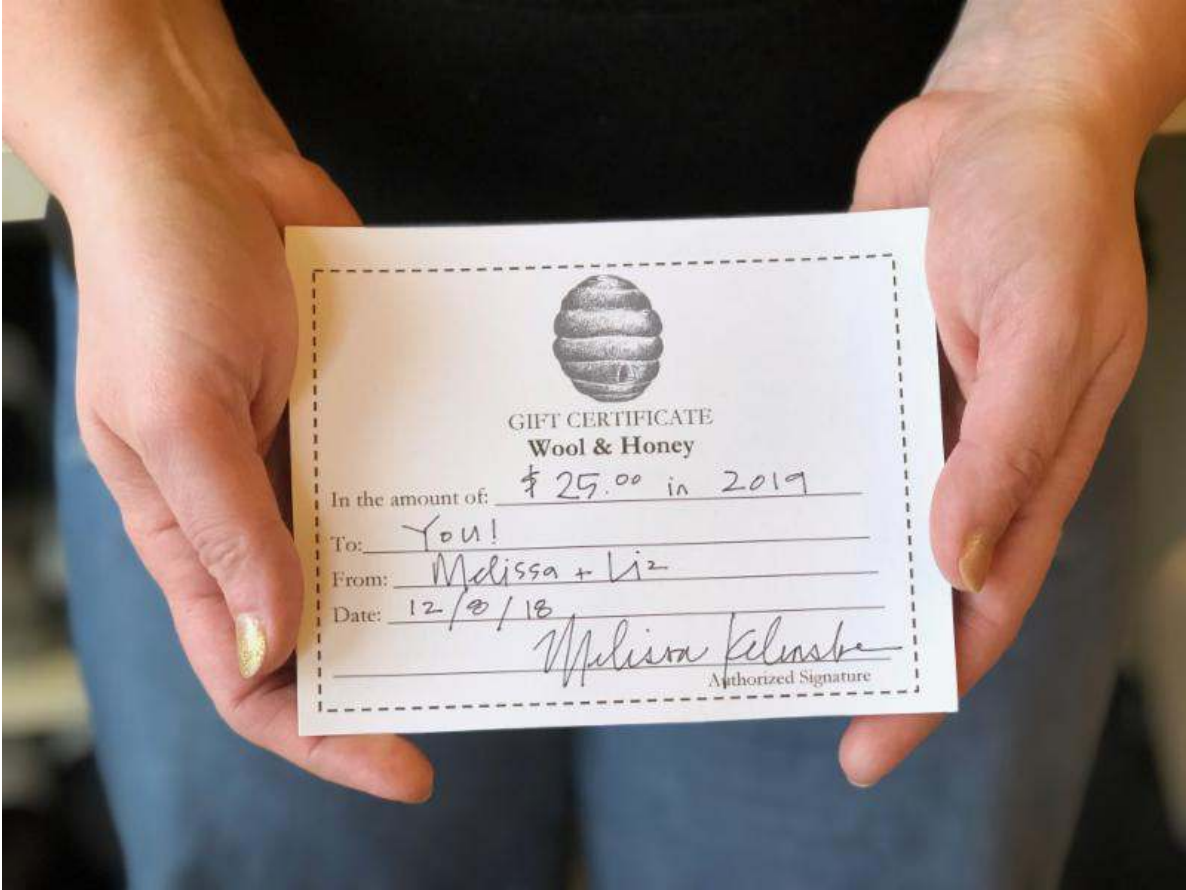 GIFT CERTIFICATE
Wool & Honey
In the amount of: $25.00 in 2019
To: You!
From: Melissa + Liz
Date: 12/8/18
Melissa
Authorized Signature